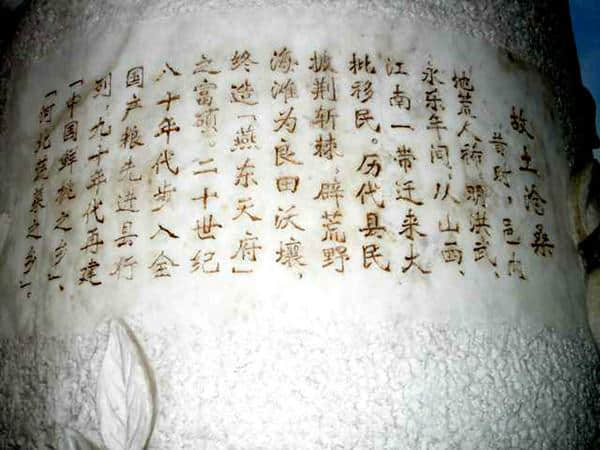 故土沧桑
昔时，邑内
地荒人稀。明洪武、
永乐年间，从山西、
江南一带迁来大
批移民。历代县民
披荆斩棘，辟荒野
海滩为良田沃壤，
终造「燕东天府」
之富。二十世纪
八十年代步入全
国产粮先进县行
列，九十年代再建
「中国鲜桃之乡」、
「河北蔬菜之乡」。